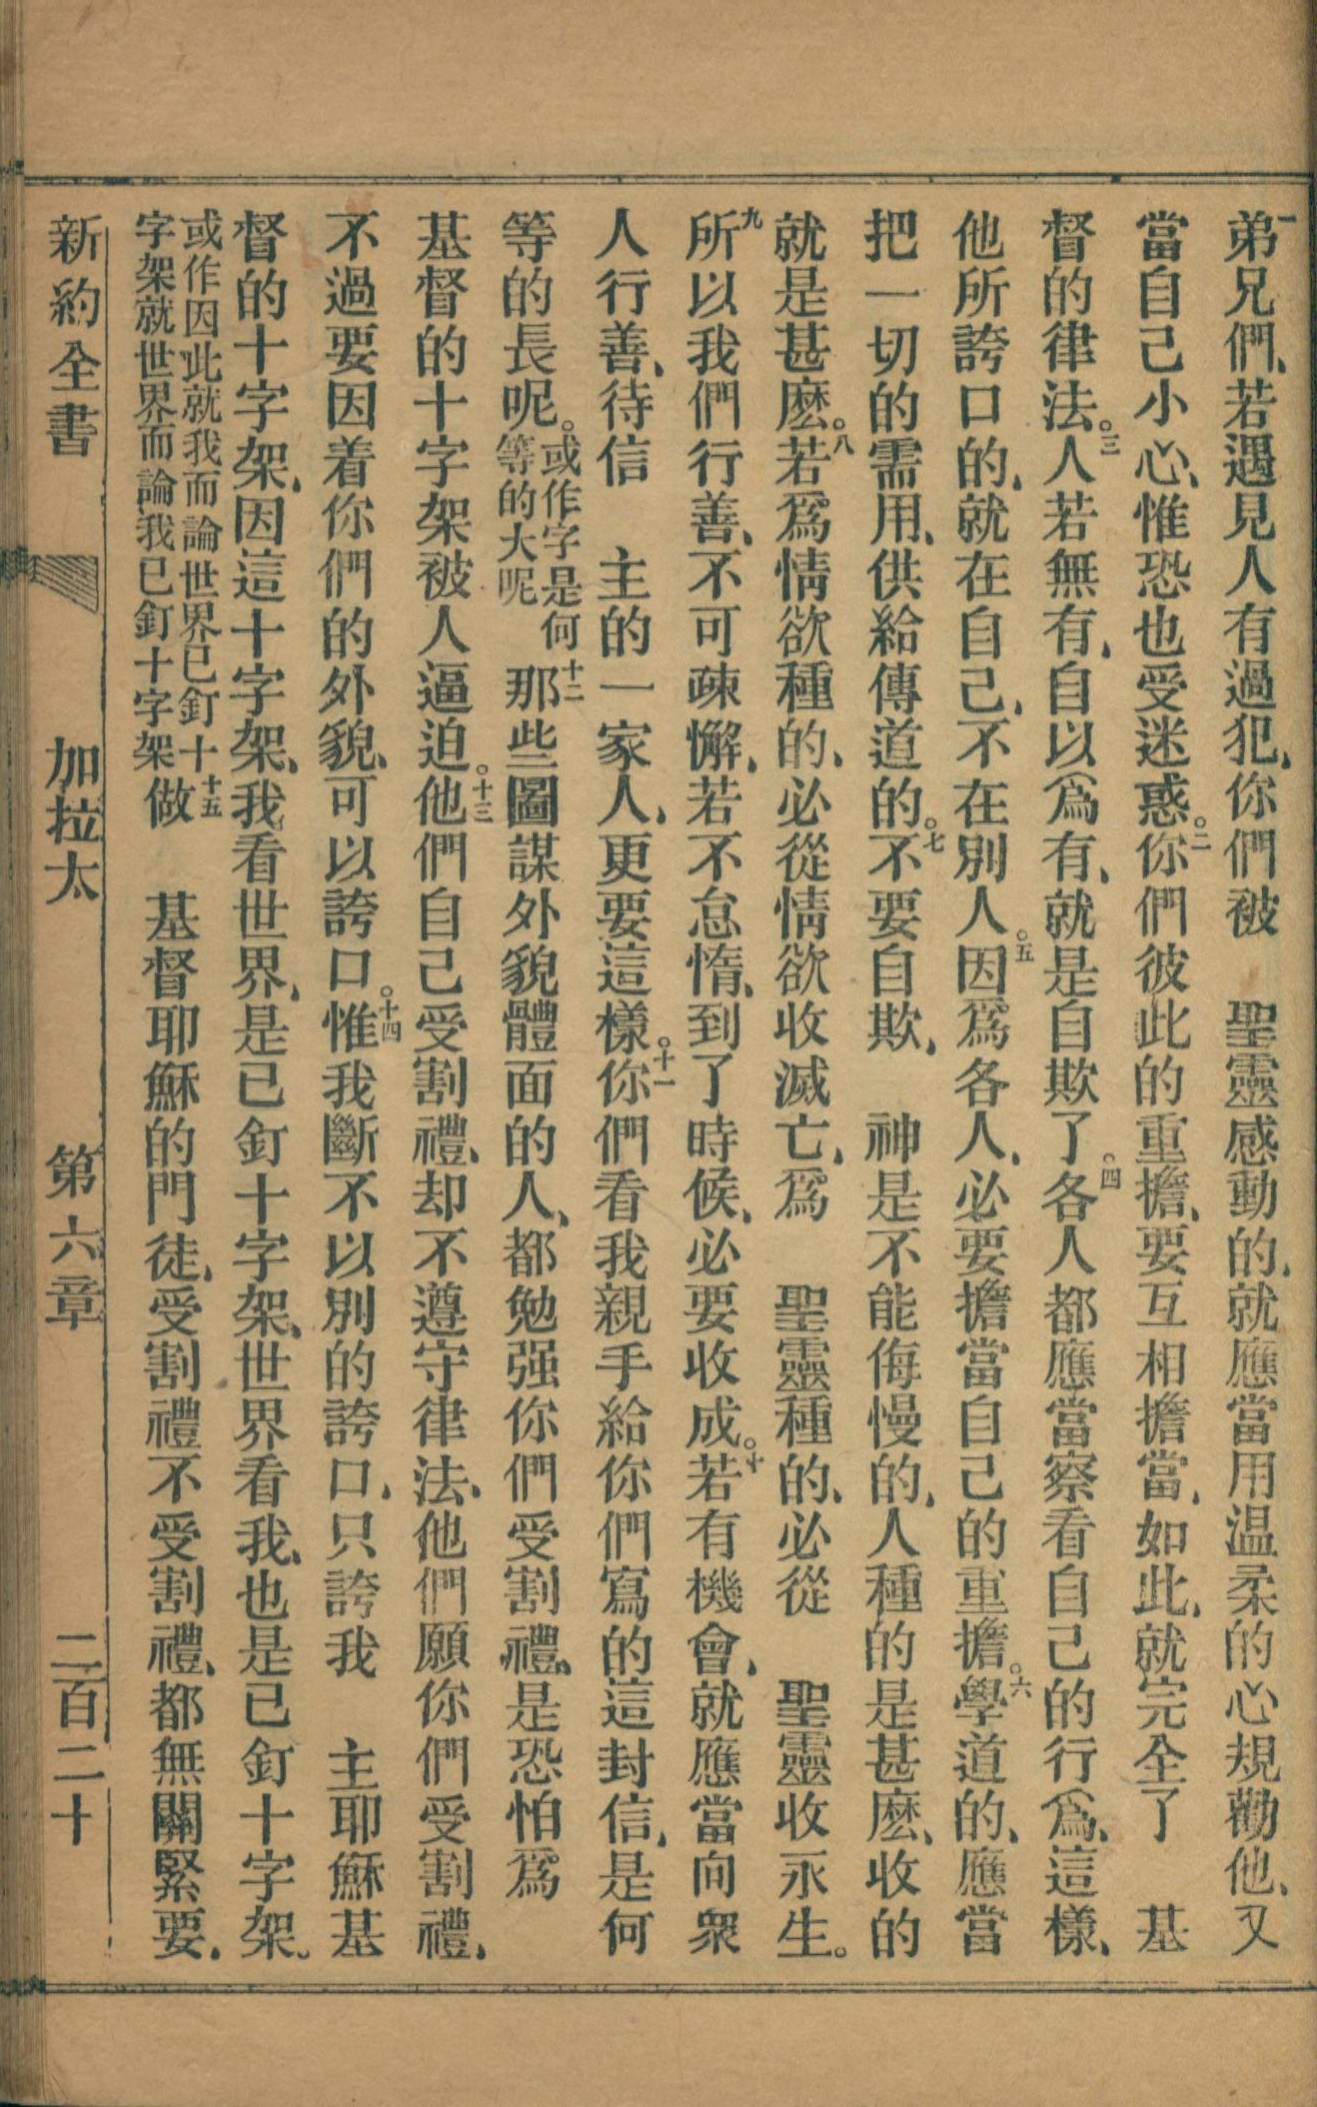 一弟兄們、若遇見人有過犯、你們被　聖靈感動的、就應當用温柔的心規勸他、又
當自己小心、惟恐也受迷惑。二你們彼此的重擔、要互相擔當、如此、就完全了　基
督的律法。三人若無有、自以爲有、就是自欺了。四各人都應當察看自己的行爲、這樣、
他所誇口的、就在自己、不在別人。五因爲各人、必要擔當自己的重擔。六學道的、應當
把一切的需用、供給傳道的。七不要自欺、　神是不能侮慢的、人種的是甚麽、收的
就是甚麽。八若爲情欲種的、必從情欲收滅亡、爲　聖靈種的、必從　聖靈收永生。
九所以我們行善、不可疎懈、若不怠惰、到了時候、必要收成。十若有機會、就應當向衆
人行善、待信　主的一家人、更要這樣。十一你們看我親手給你們寫的這封信、是何
等的長呢。或作字是何等的大呢　十二那些圖謀外貌體面的人、都勉强你們受割禮、是恐怕爲
基督的十字架被人逼迫。十三他們自己受割禮、却不遵守律法、他們願你們受割禮、
不過要因着你們的外貌、可以誇口。十四惟我斷不以別的誇口、只誇我　主耶穌基
督的十字架、因這十字架、我看世界、是已釘十字架、世界看我、也是已釘十字架。
或作因此就我而論世界已釘十字架就世界而論我已釘十字架　十五做　基督耶穌的門徒、受割禮不受割禮、都無關緊要、
新約全書　加拉太　第六章　二百二十